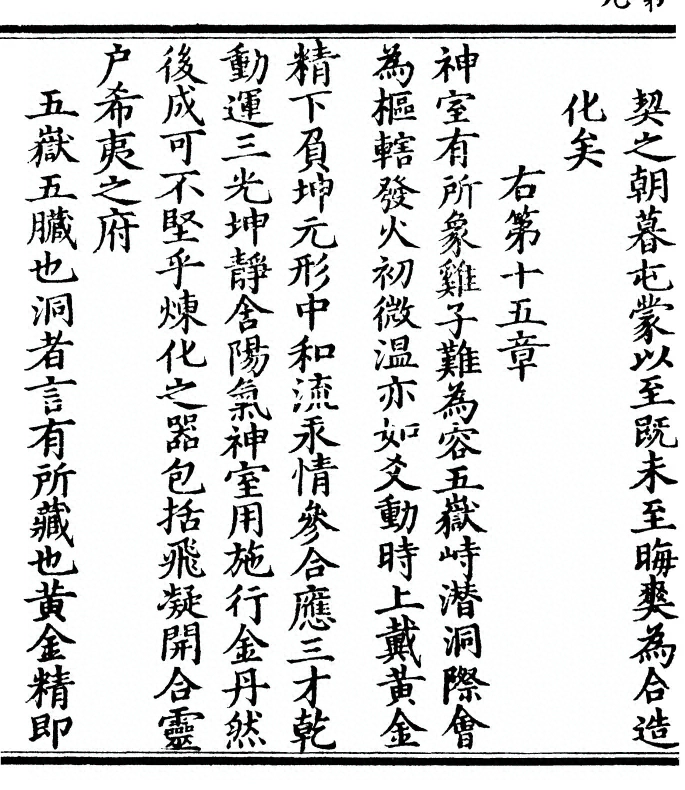 契之朝暮屯蒙以至既未至晦爽為合造
化矣
右第十五章
神室有所象雞子難為容五嶽峙潛洞際會
為樞轄發火初微温亦如爻動時上戴黃金
精下負坤元形中和流汞情參合應三才乾
動運三光坤靜舍陽氣神室用施行金丹然
後成可不堅乎煉化之器包括飛凝開合靈
户希夷之府
五嶽五臟也洞者言有所藏也黃金精即